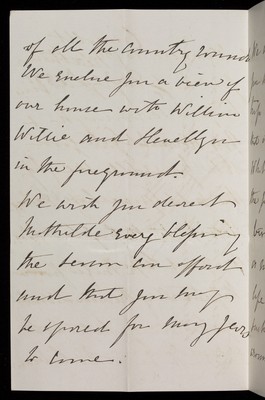 of all the country round
We enclose you a view of
our house with William
Willie and Llewellyn
in the foreground.
We wish you dearest
Mathilde every blessing
the season can afford
and that you may
be spared for many years
to come.